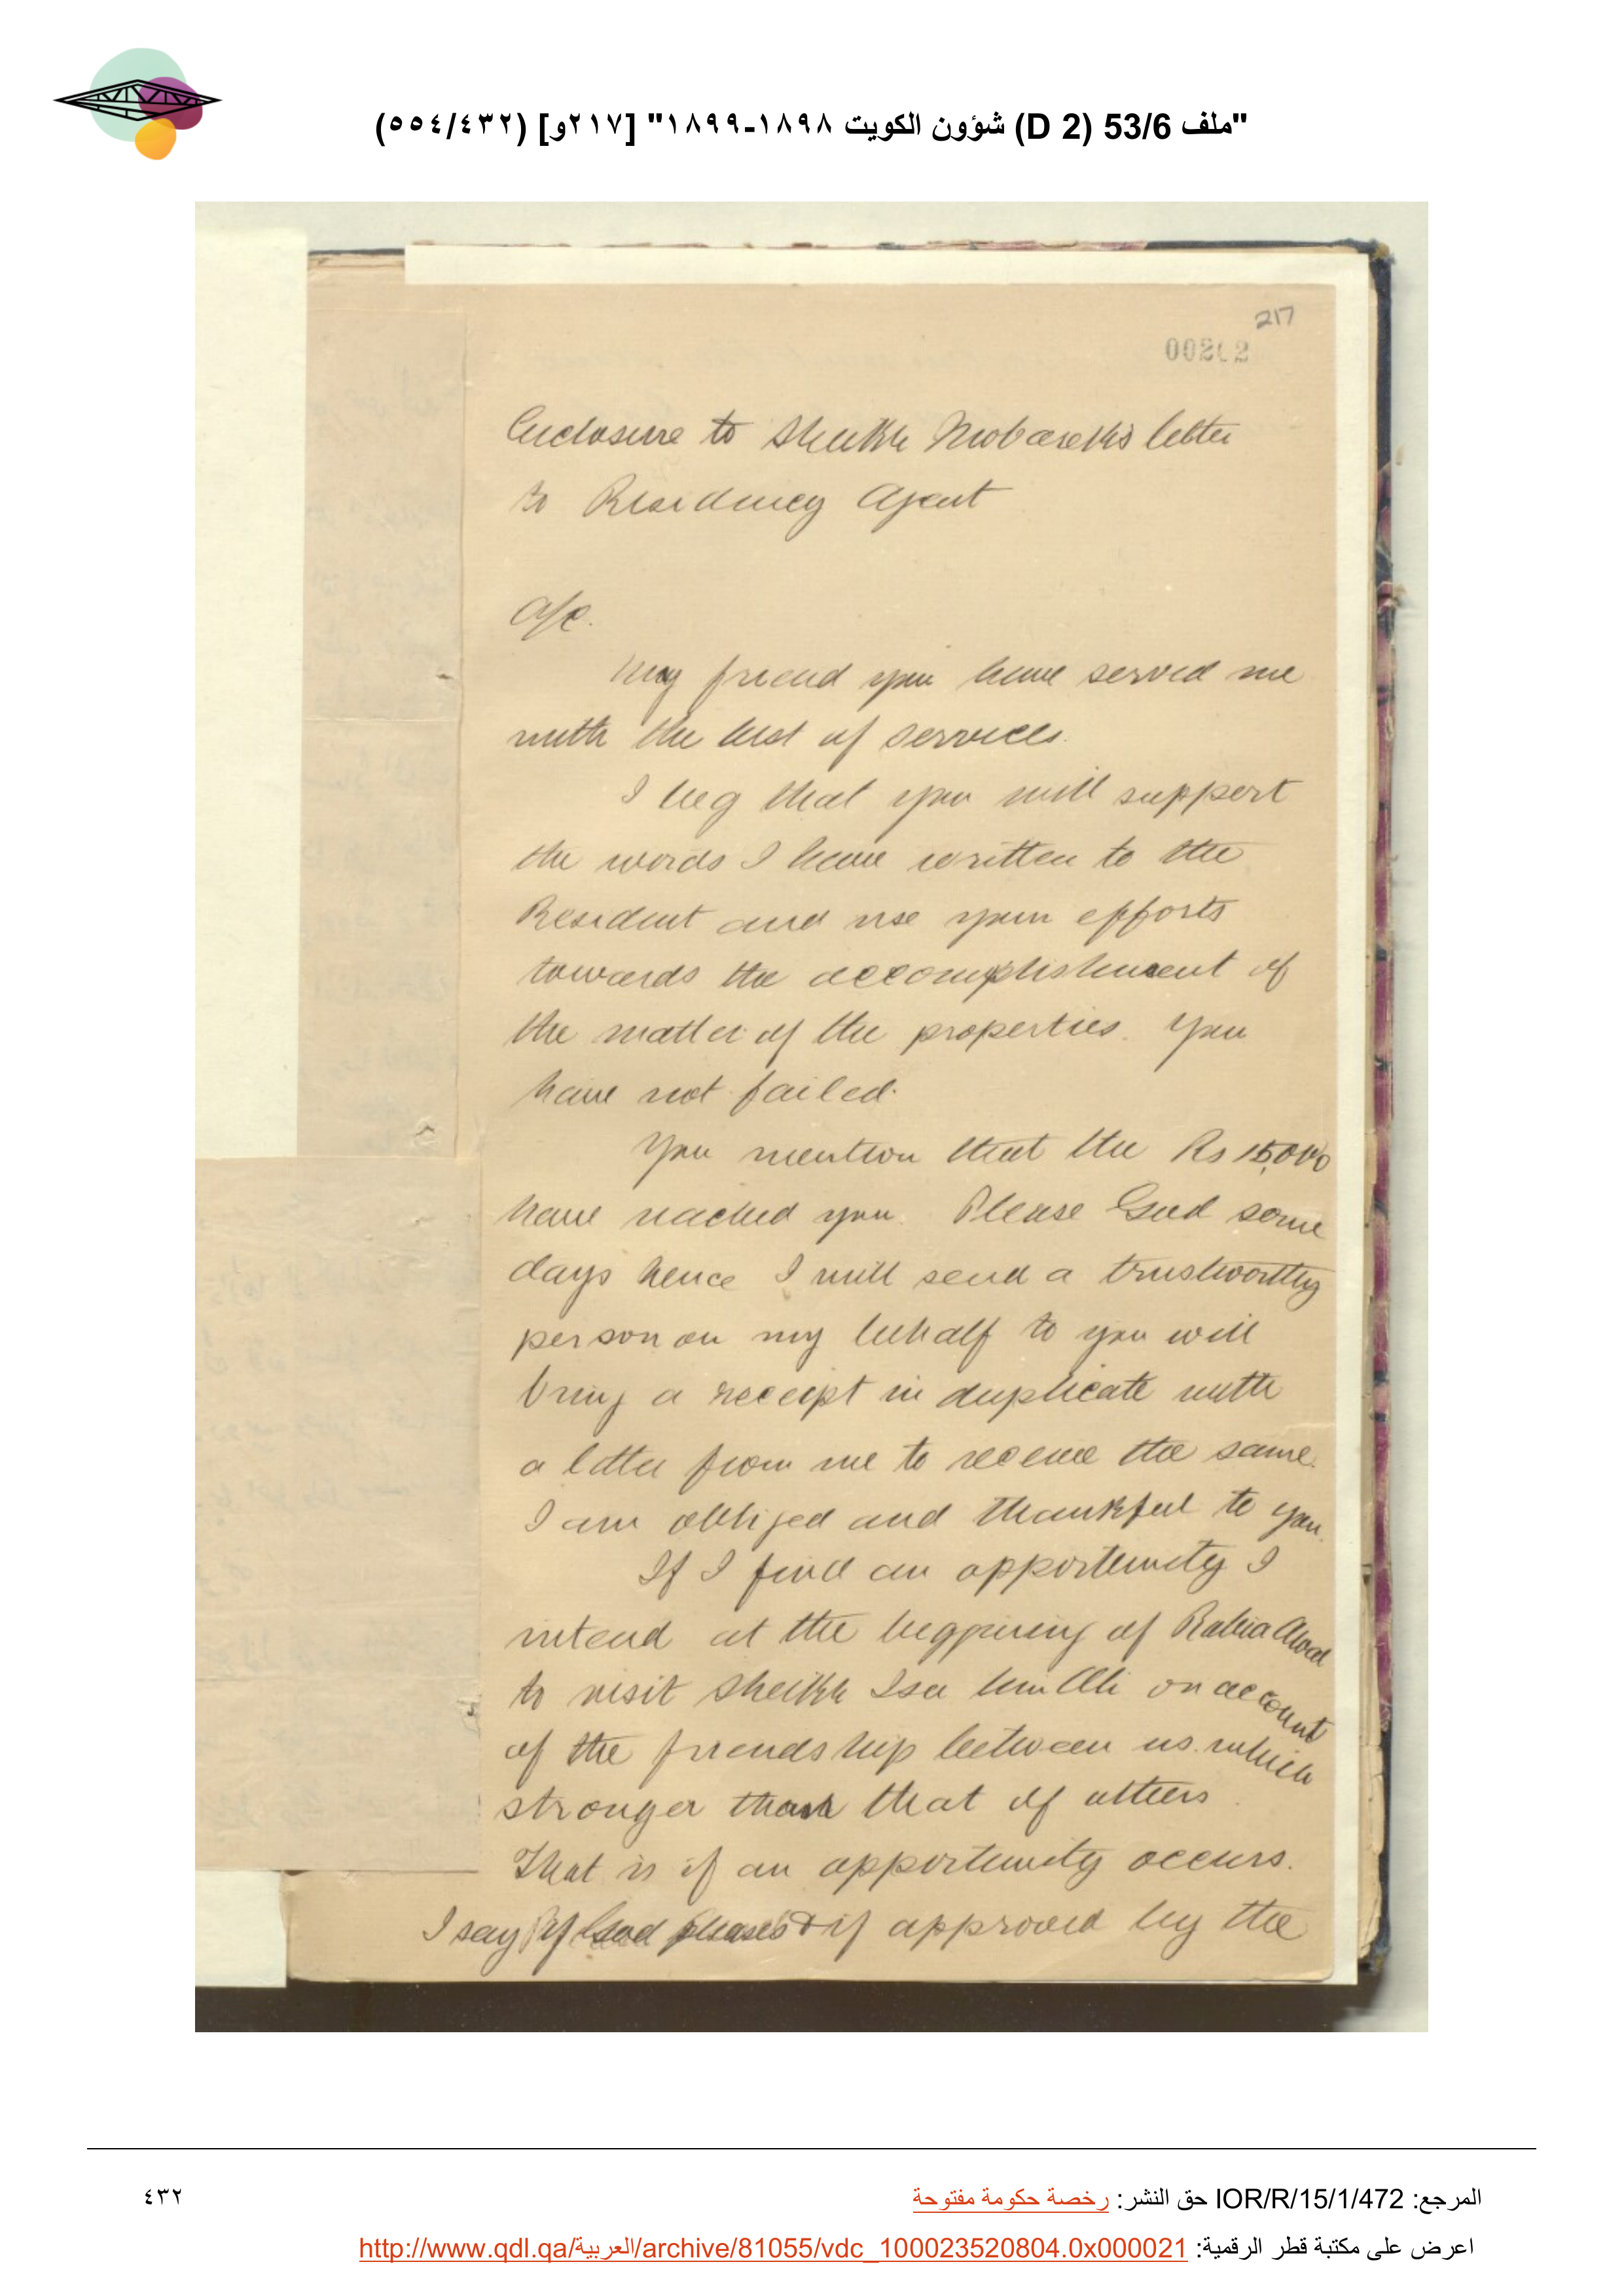 "ملف 53/6 (D 2) شؤون الكويت ١٨٩٨-١٨٩٩" [٢١٧و] (٥٥٤/٤٣٢)
217
00202
Enclosure to Sheikh Mobarek's letter
to Residency Agent
A/c.
My friend you have served me
with the best of services.
I beg that you will support
the words I have written to the
Resident and use your efforts
towards the accomplishment of
the matter of the properties. You
have not failed.
You mention that the Rs 15,000
have reached you. Please God some
days hence I will send a trustworthy
person on my behalf to you will
bring a receipt in duplicate with
a letter from me to receive the same.
I am obliged and thankful to you.
If I find an opportunity I
intend at the beggining of Rabia Awal
to visit Sheikh Isa bin Ali on account
of the friendship between us which
stronger than that of others.
That is if an opportunity occurs.
I say if God pleases & if approved by the
المرجع: IOR/R/15/1/472 حق النشر: رخصة حكومة مفتوحة
٤٣٢
اعرض على مكتبة قطر الرقمية: http://www.qdl.qa/العربية/archive/81055/vdc_100023520804.0x000021